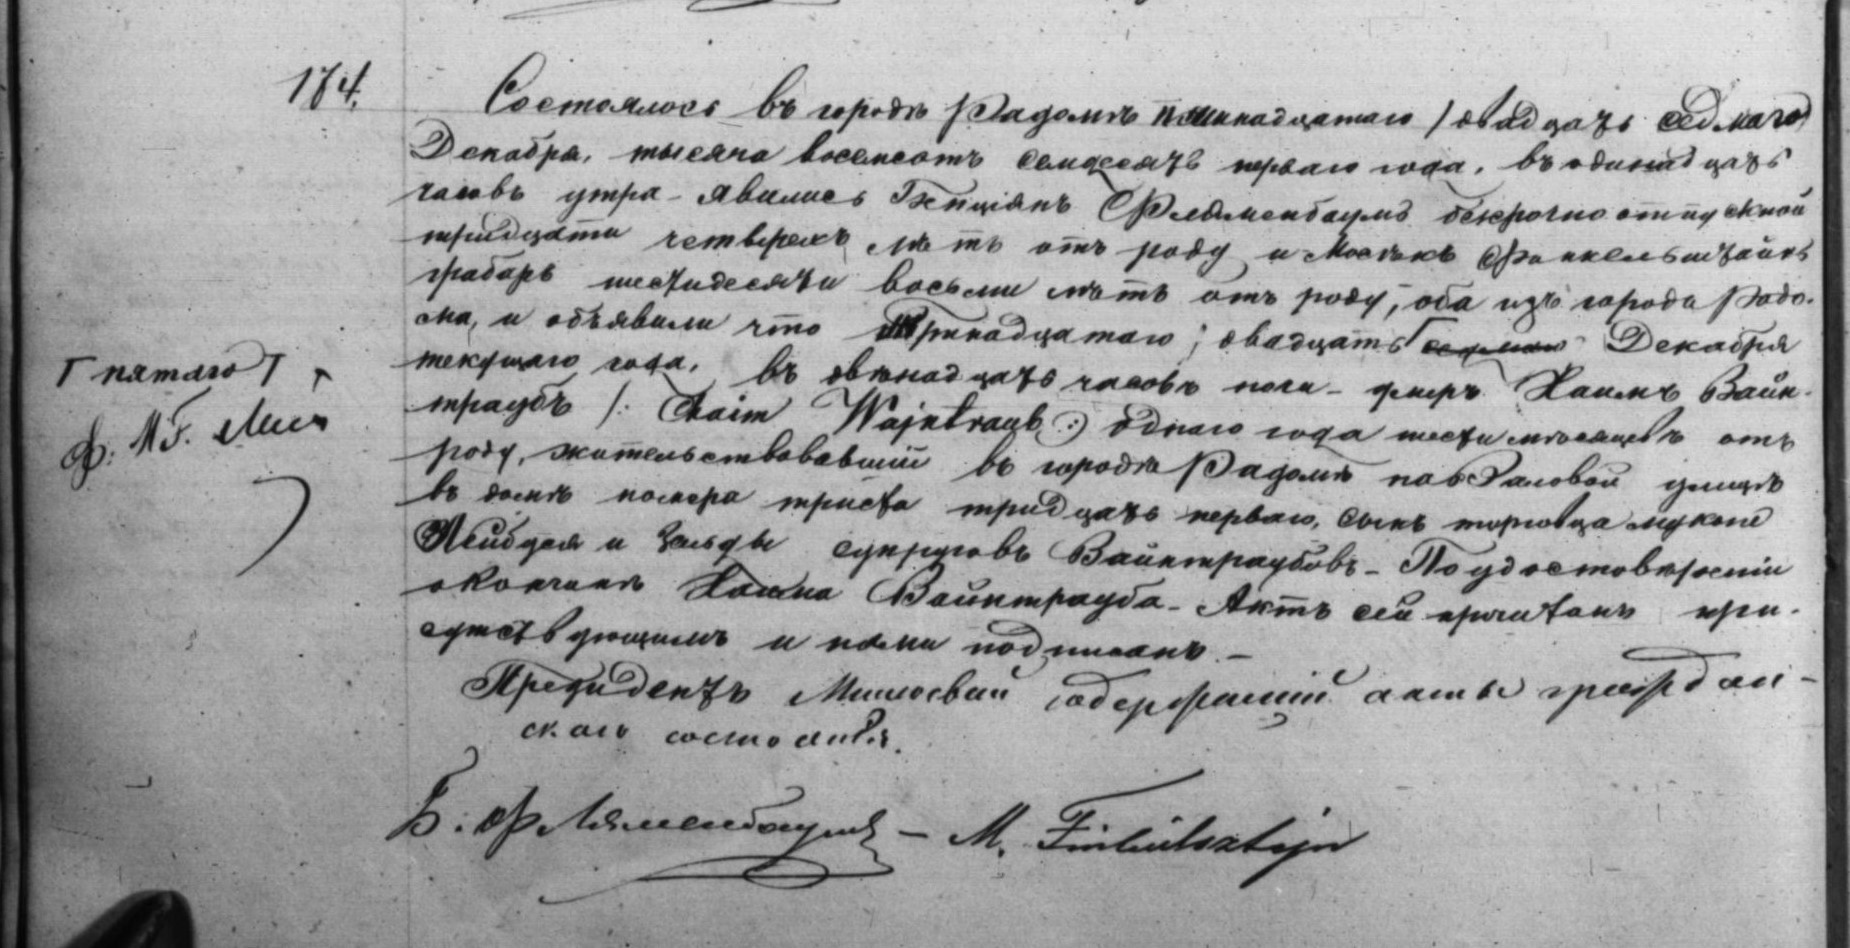 174.
Состоялось въ городѣ Радомѣ пятнадцатаго / двадцать седмаго
Декабря, тысяча восемсотъ семдесятъ перваго года, въ одинадцать
часовъ утра – явились Бенціянъ Флямембаумъ безсрочно отпускной
тридцати четверехъ лѣтъ отъ роду и Мосѣкъ Финкельштайнъ
грабарь шестидесяти восьми лѣтъ отъ роду, оба изъ города Радо-
ма, и объявили что Тринадцатаго / двадцать седмаго Декабря
Г пятаго Т
текущаго года, въ двѣнадцать часовъ ночи – умеръ Хаимъ Вайн-
траубъ /: Chaim Wajntraub :/ одного года шести мѣсяцевъ отъ
Ф. М. F.
роду, жительствовавшій въ городѣ Радомѣ на Валовой улицѣ
въ домѣ номера триста тридцать перваго, сынъ торговца мукою
Лейбуся и Зельды супруговъ Вайнтраубовъ – По удостовѣреніи
о кончинѣ Хаима Вайнтрауба – Актъ сей прочитанъ при-
сутствующимъ и нами подписанъ. –
Президентъ содержащій акты граждан-
скаго состоянія.
Б. Флямембаумъ – M. Finkielsztejn